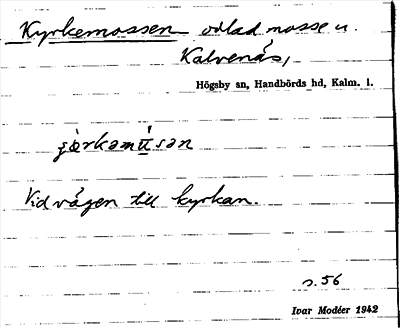 Kyrkemossen odlad mosse u.
Kalvenäs,
Högsby sn, Handbörds hd, Kalm. l.
Vid vägen till kyrkan.
s. 56
Ivar Modéer 1942